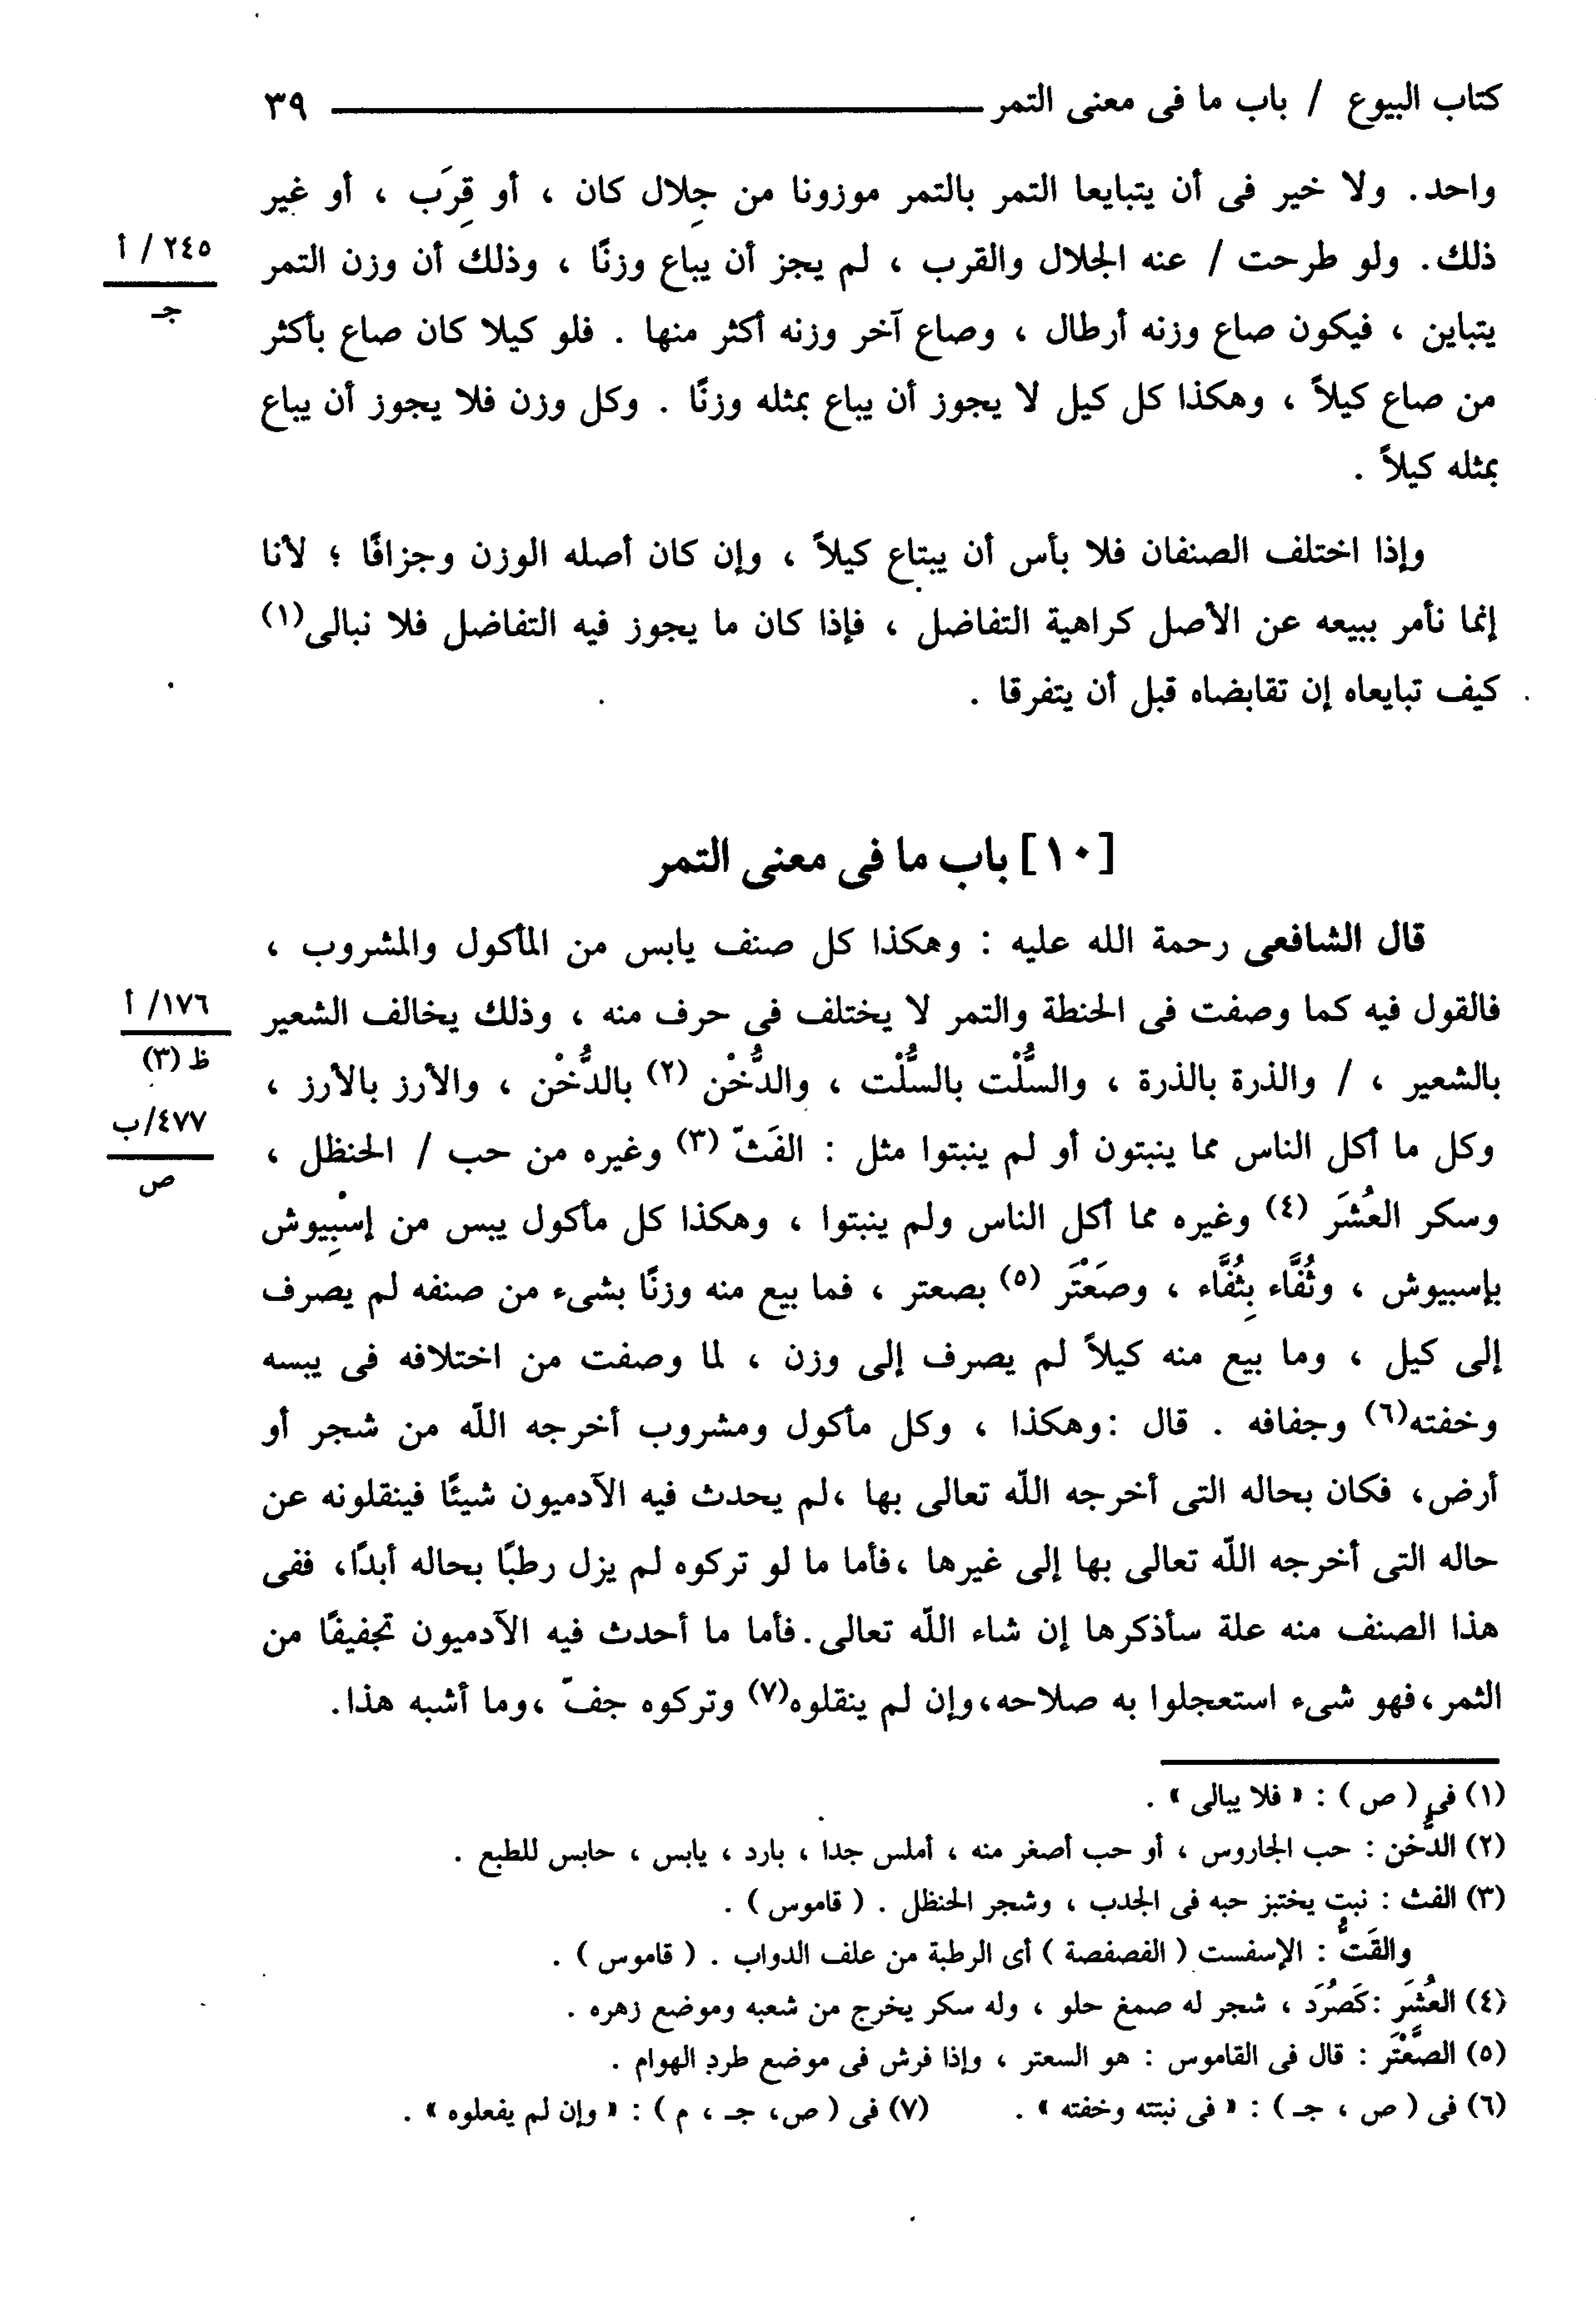 كتاب البيوع / باب ما فى معنى التمر ــــــــــــ ٣٩
واحد. ولا خير فى أن يتبايعا التمر بالتمر موزونا من جِلال كان ، أو قِرَب ، أو غير
ذلك. ولو طرحت / عنه الجلال والقرب ، لم يجز أن يباع وزنًا ، وذلك أن وزن التمر
٢٤٥ / أ
جـ
يتباين ، فيكون صاع وزنه أرطال ، وصاع آخر وزنه أكثر منها . فلو كيلا كان صاع بأكثر
من صاع كيلاً ، وهكذا كل كيل لا يجوز أن يباع بمثله وزنًا . وكل وزن فلا يجوز أن يباع
بمثله كيلاً .
وإذا اختلف الصنفان فلا بأس أن يبتاع كيلاً ، وإن كان أصله الوزن وجزافًا ؛ لأنا
إنما نأمر ببيعه عن الأصل كراهية التفاضل ، فإذا كان ما يجوز فيه التفاضل فلا نبالى(١)
كيف تبايعاه إن تقابضاه قبل أن يتفرقا .
[١٠] باب ما فى معنى التمر
قال الشافعى رحمة الله عليه : وهكذا كل صنف يابس من المأكول والمشروب ،
فالقول فيه كما وصفت فى الحنطة والتمر لا يختلف فى حرف منه ، وذلك يخالف الشعير
١٧٦/ أ
ظ (٣)
بالشعير ، / والذرة بالذرة ، والسُّلْت بالسُّلْت ، والدُّخْن (٢) بالدُّخْن ، والأرز بالأرز ،
وكل ما أكل الناس مما ينبتون أو لم ينبتوا مثل : الفَثّ (٣) وغيره من حب / الحنظل ،
٤٧٧/ب
ص
وسكر العُشَر (٤) وغيره مما أكل الناس ولم ينبتوا ، وهكذا كل مأكول يبس من إسْبِيوش
بإسبيوش ، وثُفَّاء بِثُفَّاء ، وصَعْتَر (٥) بصعتر ، فما بيع منه وزنًا بشىء من صنفه لم يصرف
إلى كيل ، وما بيع منه كيلاً لم يصرف إلى وزن ، لما وصفت من اختلافه فى يبسه
وخفته(٦) وجفافه . قال :وهكذا ، وكل مأكول ومشروب أخرجه اللّه من شجر أو
أرض، فكان بحاله التى أخرجه اللّه تعالى بها ،لم يحدث فيه الآدميون شيئًا فينقلونه عن
حاله التى أخرجه اللّه تعالى بها إلى غيرها ،فأما ما لو تركوه لم يزل رطبًا بحاله أبدًا، ففى
هذا الصنف منه علة سأذكرها إن شاء اللّه تعالى. فأما ما أحدث فيه الآدميون تجفيفًا من
الثمر،فهو شىء استعجلوا به صلاحه،وإن لم ينقلوه(٧) وتركوه جفّ ،وما أشبه هذا.
(١) فى ( ص ) : « فلا يبالى » .
(٢) الدُّخن : حب الجاروس ، أو حب أصغر منه ، أملس جدا ، بارد ، يابس ، حابس للطبع .
(٣) الفث : نبت يختبز حبه فى الجدب ، وشجر الحنظل . ( قاموس ) .
والقَتُّ : الإسفست ( الفصفصة ) أى الرطبة من علف الدواب . ( قاموس ) .
(٤) العُشَر :كَصُرَد ، شجر له صمغ حلو ، وله سكر يخرج من شعبه وموضع زهره .
(٥) الصَّعْتَر : قال فى القاموس : هو السعتر ، وإذا فرش فى موضع طرد الهوام .
(٦) فى ( ص ، جـ ) : « فى نبتته وخفته » . (٧) فى ( ص، جـ ، م ) : « وإن لم يفعلوه » .